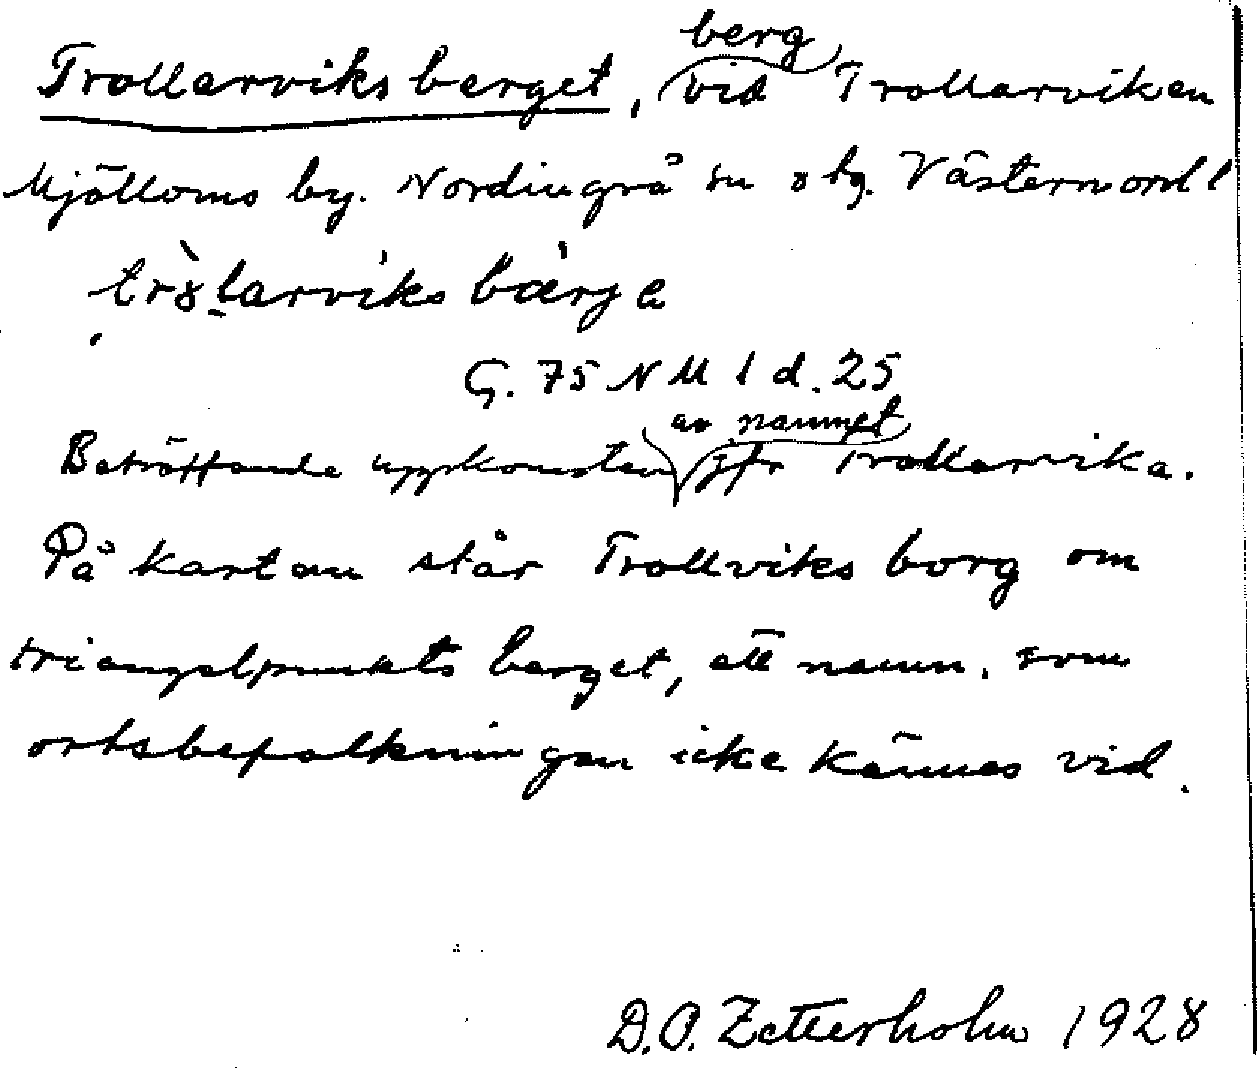 Trollarviksberget, berg vid Trollarviken
Mjälloms by. Nordingrå sn o tg. Västernorrl
G. 75 NM 1 d. 25
Beträffande uppkomsten av namnet jfr Trollarvika.
På kartan står Trollviks borg om
triangelpunkts berget, ett namn, som
ortsbefolkningen icke kännes vid.
D.O. Zetterholm 1928